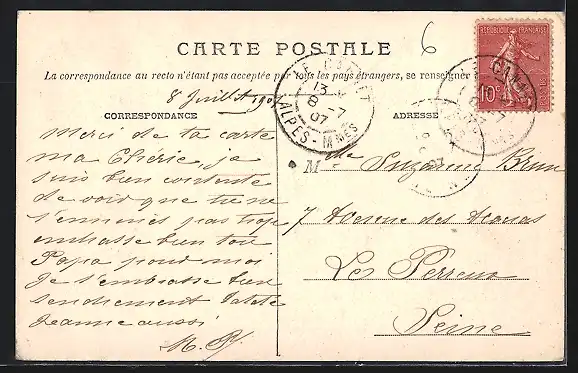 CARTE POSTALE
6
La correspondance au recto n'étant pas acceptée par tous les pays étrangers, se renseigner à
8 Juillet 1907
CORRESPONDANCE
ADRESSE
LE CANNET
13
8 -7
07
ALPES-MMES
RÉPUBLIQUE FRANÇAISE
10c
POSTES
CANNET
Merci de ta carte
ma Chérie, je
suis bien contente
de voir que tu ne
t'ennuies pas trop
embrasse bien ton
Papa pour moi
Je t'embrasse bien
tendrement
Jeanne aussi
M. B.
Mlle Suzanne Brun
7 Avenue des
Les Perreux
Seine